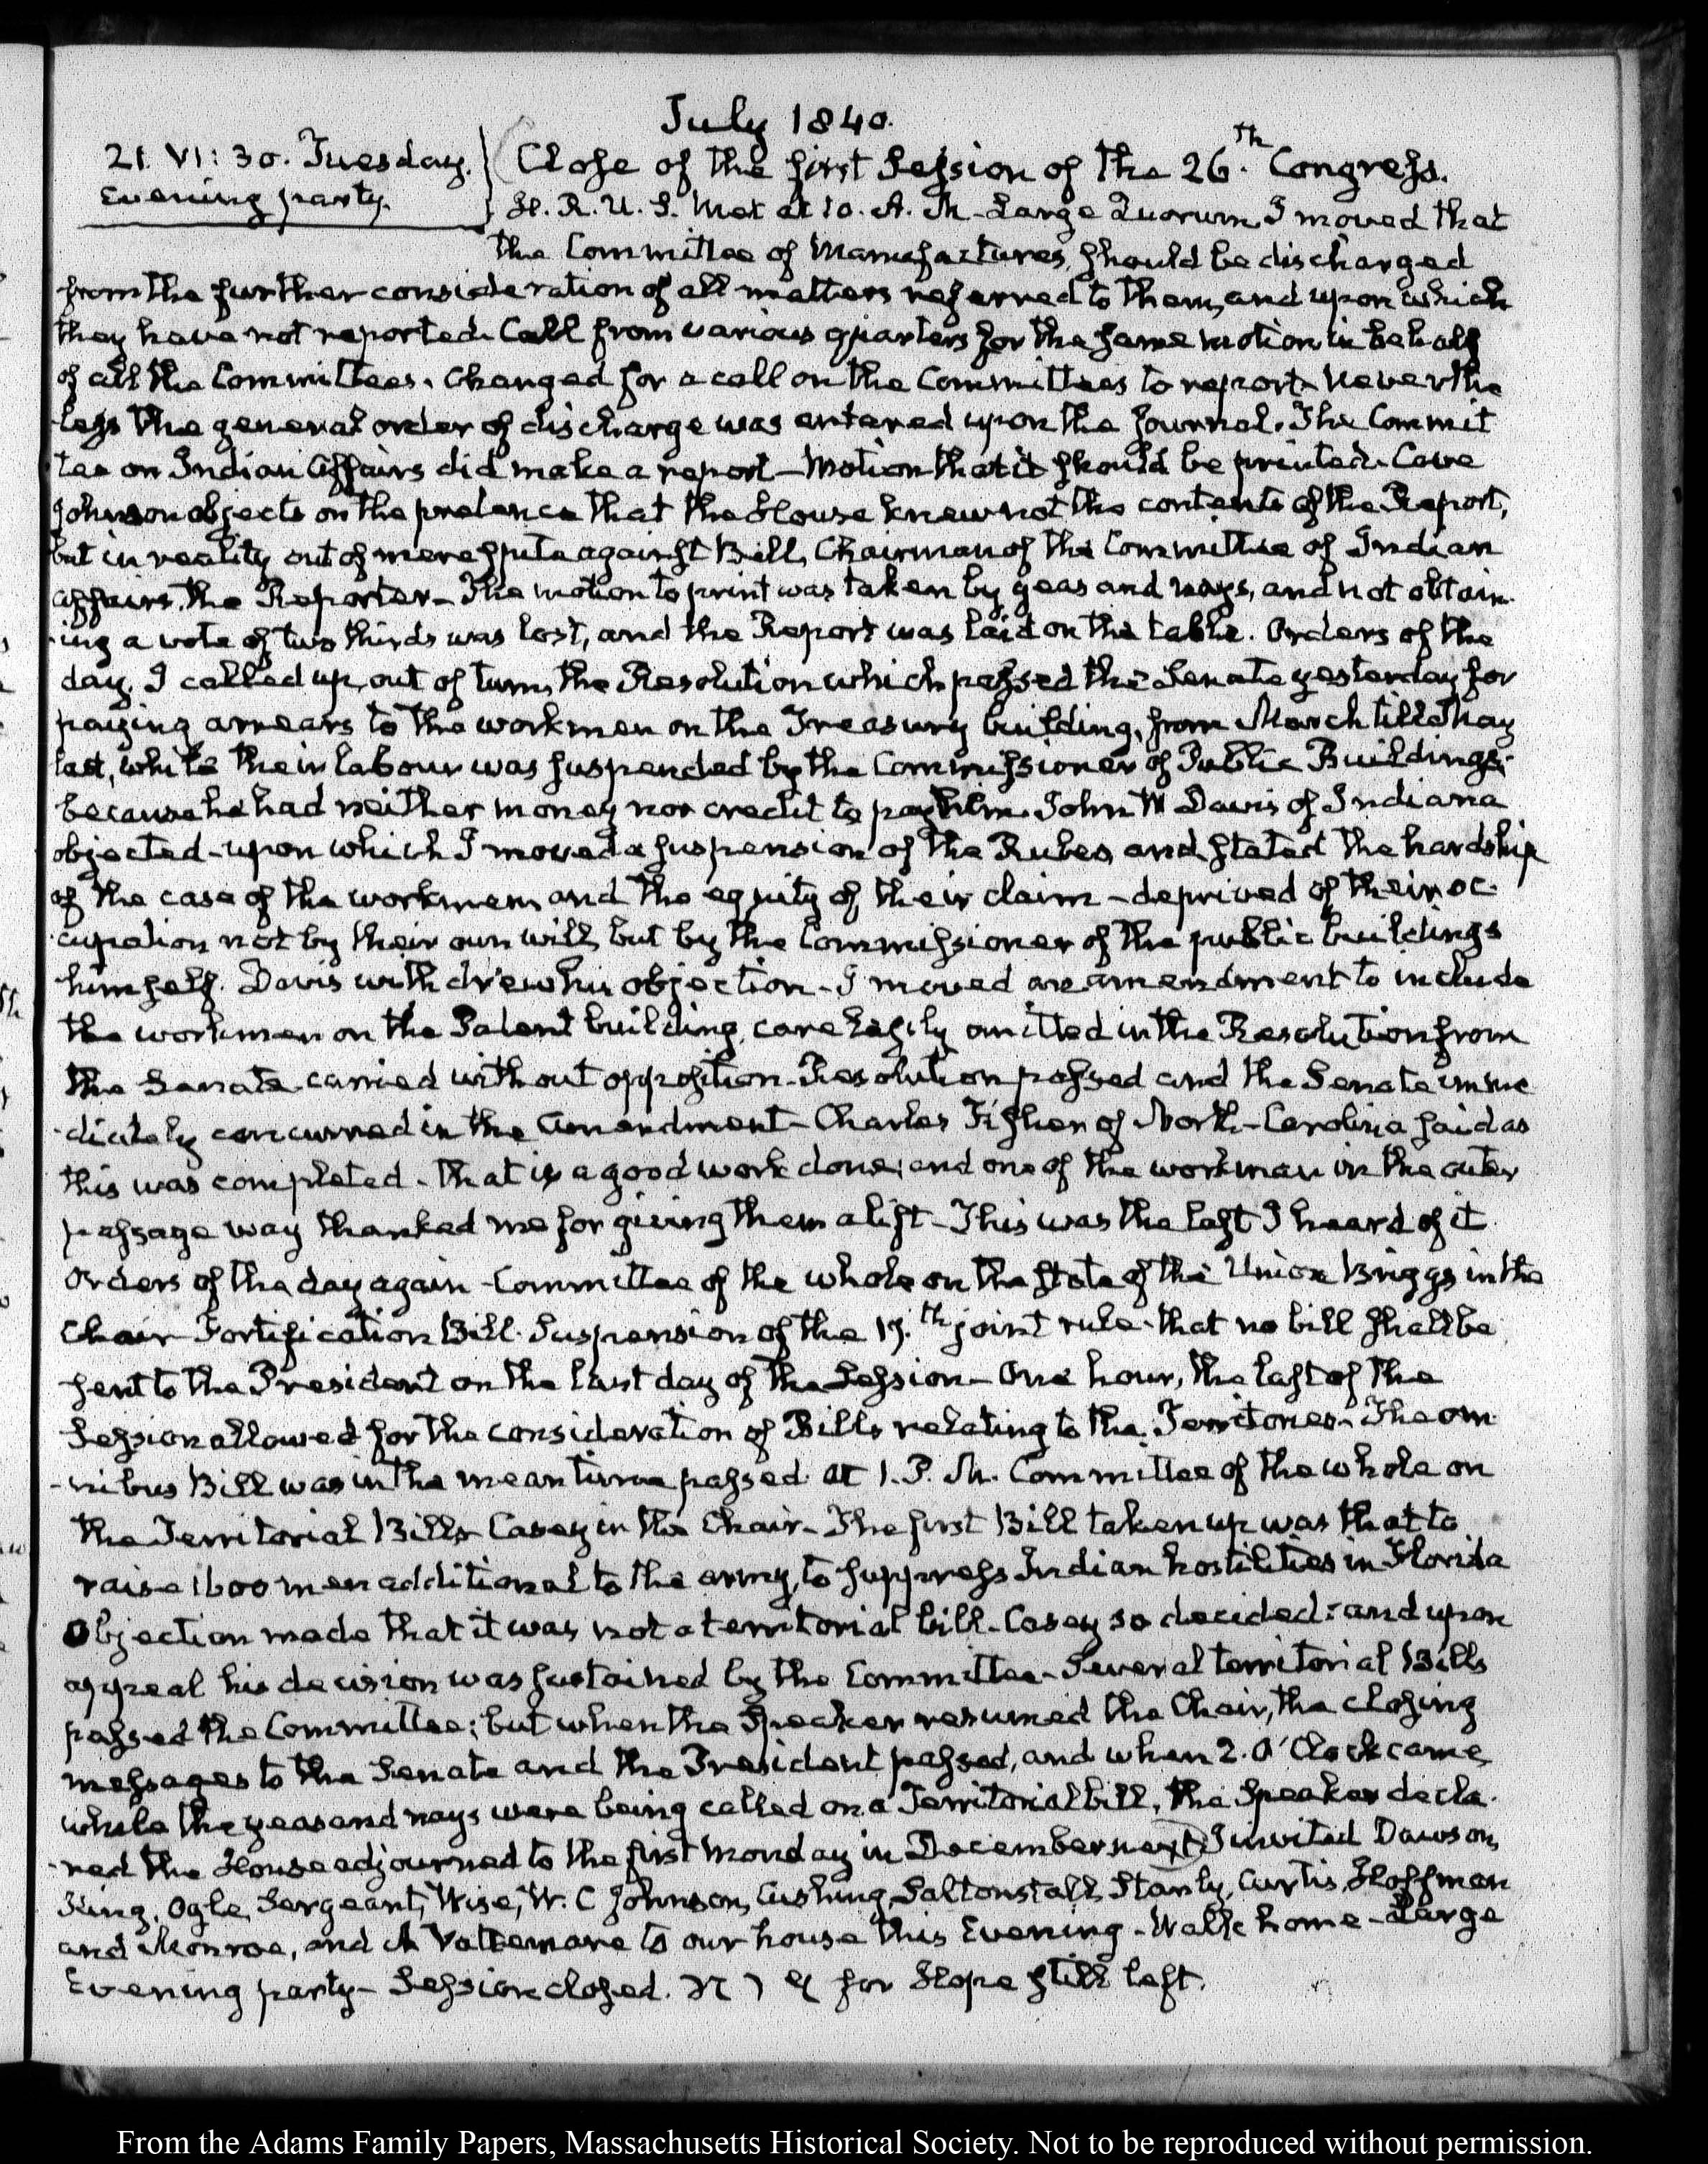 July 1840.
21. VI: 30. Tuesday. Close of the first Session of the 26.th Congress.
Evening party. H. R. U. S. Met at 10. A. M. Large Quorum. I moved that
the Committee of Manufactures, should be discharged
from the further consideration of all matters referred to them, and upon which
they have not reported. Call from various quarters for the same motion in behalf
of all the Committees. Changed for a call on the Committees to report. Neverthe
less the general order of discharge was entered upon the Journal. The Commit
tee on Indian Affairs did make a report - Motion that it should be printed. Cave
Johnson objects on the pretence that the House knew not the contents of the Report,
but in reality out of mere spite against Bell, Chairman of the Committee of Indian
affairs, the Reporter - The motion to print was taken by yeas and nays, and not obtain-
-ing a vote of two thirds was lost, and the Report was laid on the table. Orders of the
day. I called up, out of turn, the Resolution which passed the Senate yesterday, for
paying arrears to the workmen on the Treasury building, from March till May
last, while their labour was suspended by the Commissioner of Public Buildings;
because he had neither money nor credit to pay them. John W Davis of Indiana
objected - upon which I moved a suspension of the Rules, and stated the hardship
of the case of the workmen, and the equity of their claim - deprived of their oc-
-cupation not by their own will, but by the Commissioner of the public buildings
himself. Davis withdrew his objection - I moved an amendment to include
the workmen on the Patent building, carelessly omitted in the Resolution from
the Senate - carried without opposition - Resolution passed and the Senate imme
-diately concurred in the Amendment - Charles Fisher of North-Carolina said as
this was completed - that is a good work done; and one of the workmen in the outer
passage way thanked me for giving them a lift - This was the last I heard of it.
Orders of the day again - Committee of the whole on the State of the Union Briggs in the
Chair Fortification Bill. Suspension of the 17.th joint rule that no bill shall be
sent to the President on the last day of the Session - One hour, the last of the
Session allowed for the consideration of Bills relating to the Territories - The om-
-nibus Bill was in the mean time passed. At 1. P. M. Committee of the whole on
the Territorial Bills. Casey in the Chair - The first Bill taken up was that to
raise 1600 men additional to the army, to suppress Indian hostilities in Florida
Objection made that it was not a territorial bill - Casey so decided: and upon
appeal his decision was sustained by the Committee - Several territorial Bills
passed the Committee; but when the Speaker resumed the Chair, the closing
messages to the Senate and the President passed, and when 2. O'Clock came,
while the yeas and nays were being called on a Territorial bill, the Speaker decla-
-red the House adjourned to the first Monday in December next. I invited Dawson,
King, Ogle, Sergeant, Wise, W. C Johnson, Cushing, Saltonstall, Stanly, Curtis, Hoffman
and Monroe, and A Vattemare to our house this Evening - Walk home - Large
Evening party - Session closed. for Hope still left.
From the Adams Family Papers, Massachusetts Historical Society. Not to be reproduced without permission.